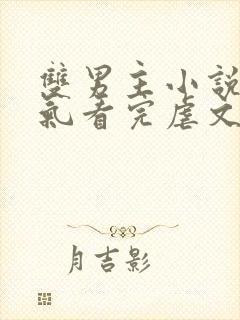 雙男主小說
氣看完虐文
月吉影